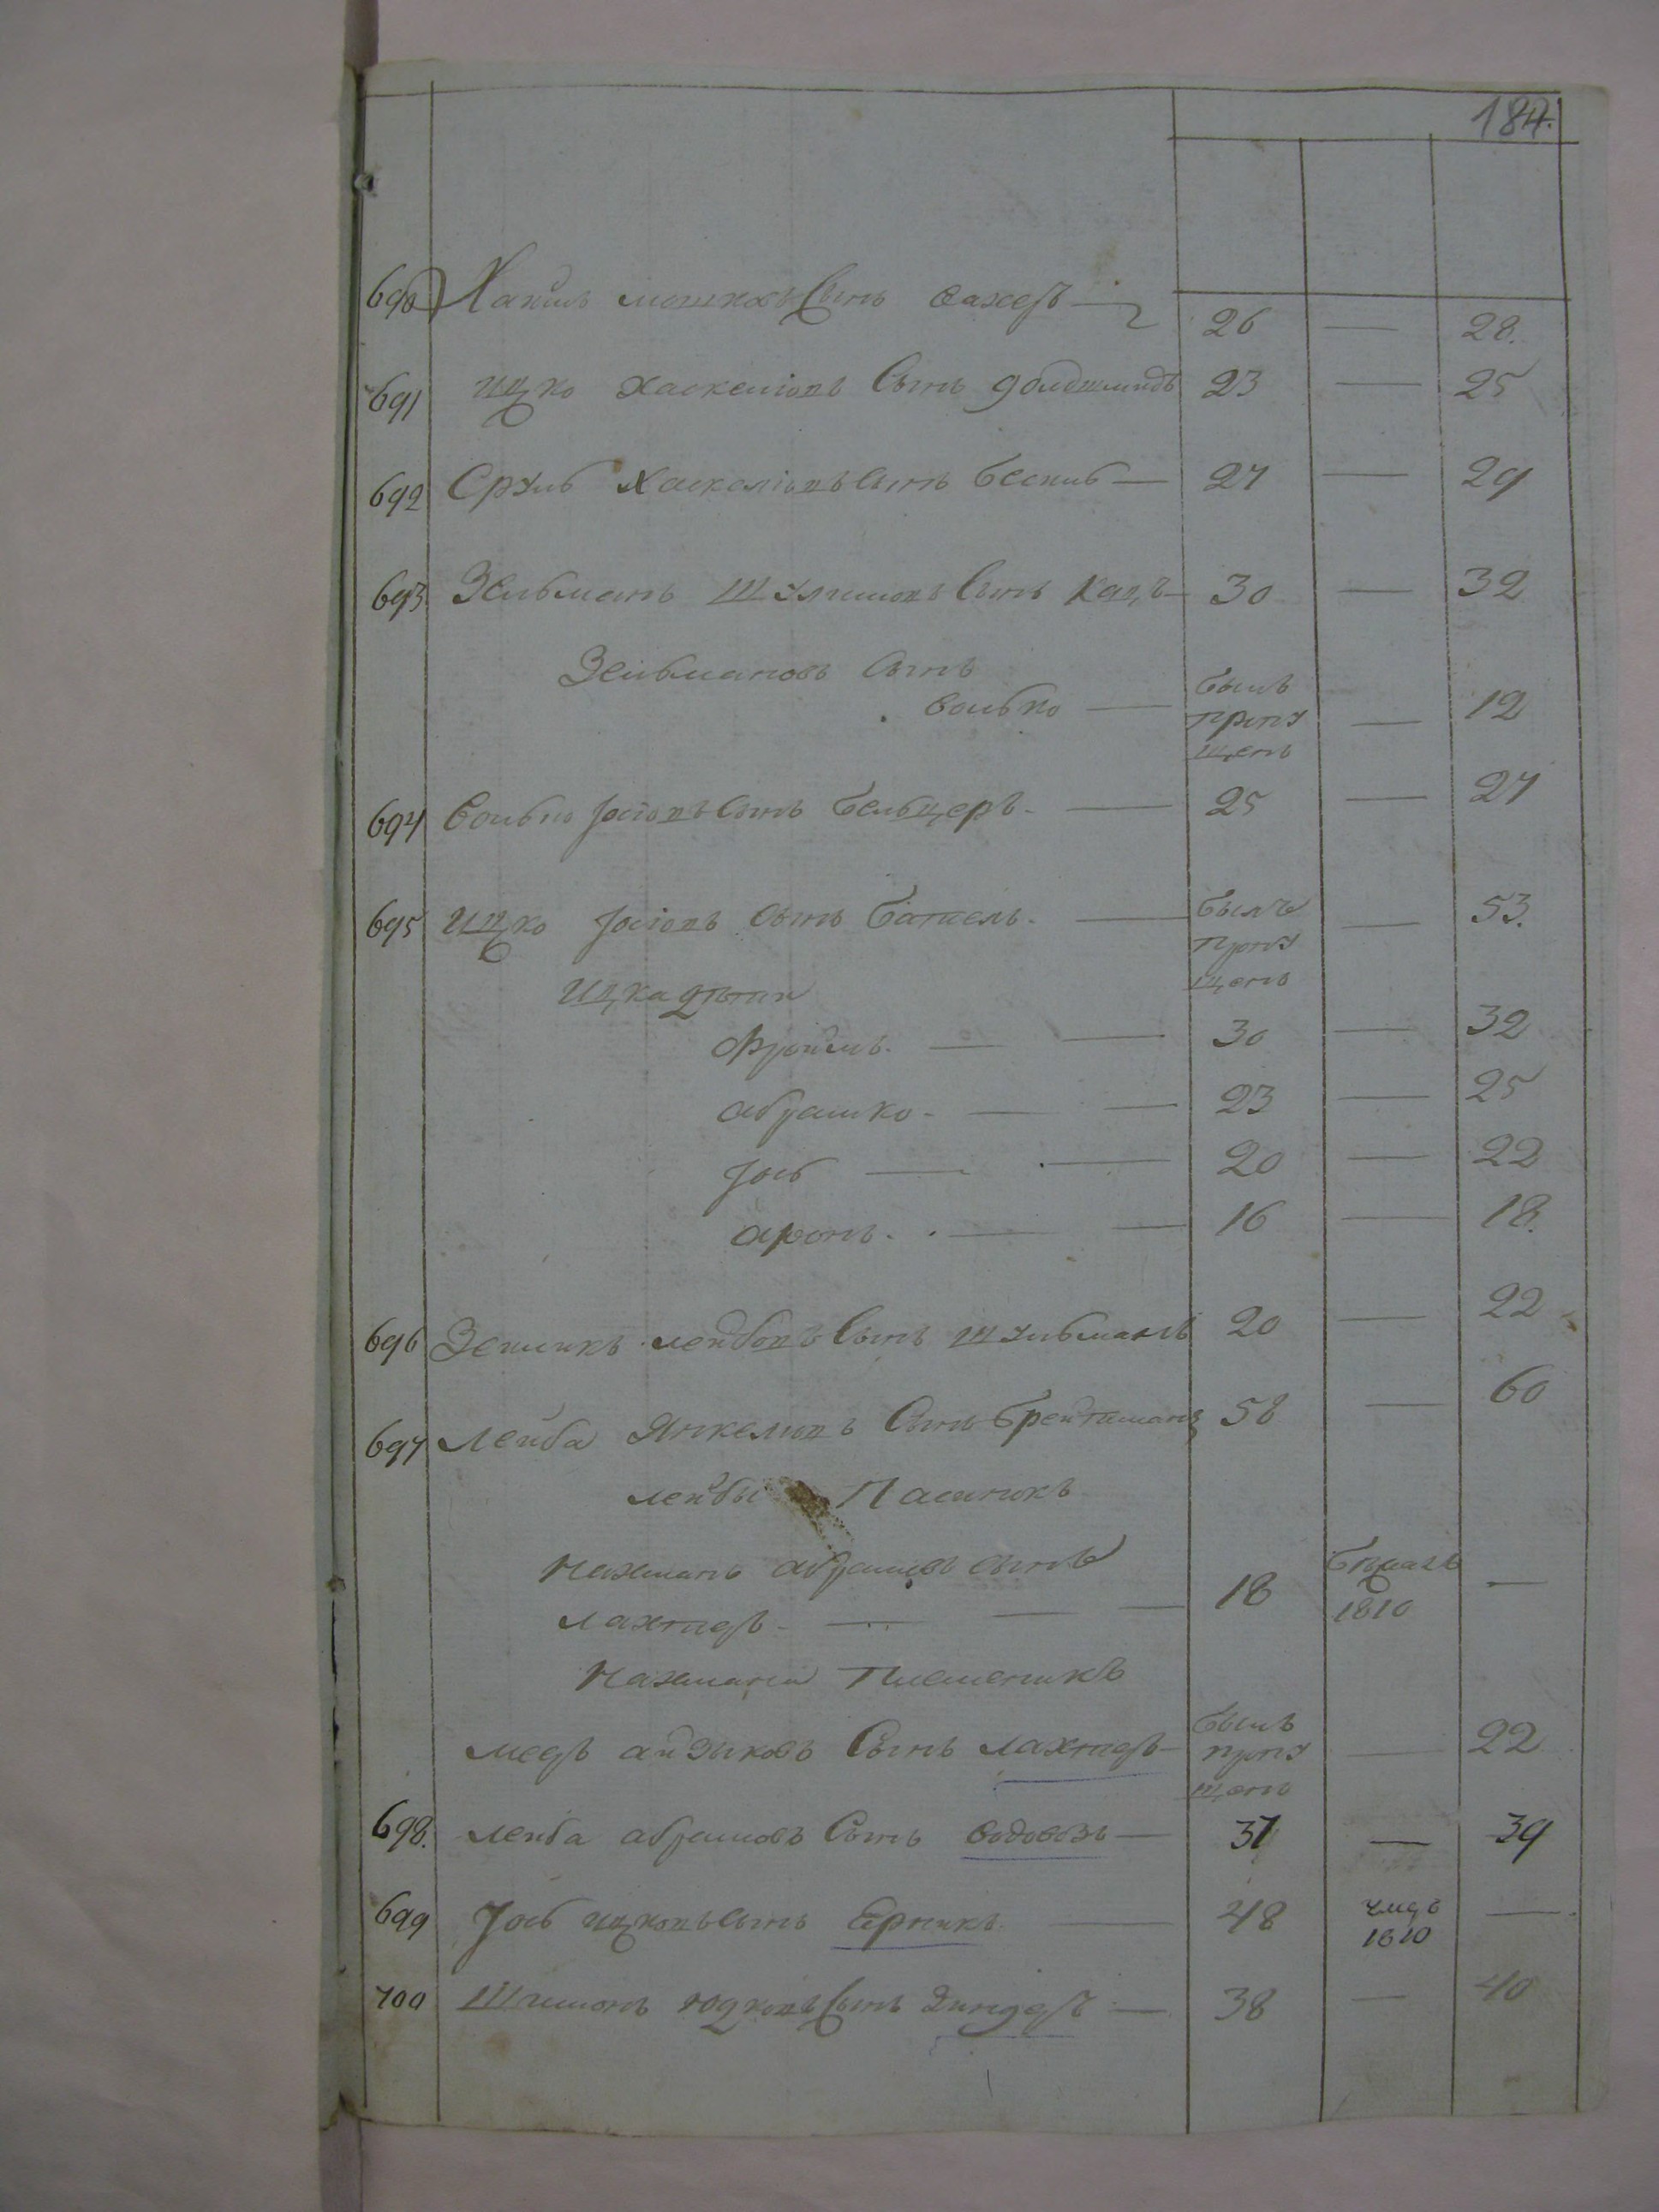 184.
690 Хаимъ мошковъ Сынъ вахеръ — 26 — 28.
691 ицко хаскелюпъ Сынъ голдшмидъ 23 — 25
692 Сруль Хаскелюпъ Сынъ — 27 — 29
693 Зельманъ Шулимопъ Сынъ кацъ — 30 — 32
Зельмановъ Сынъ
волько — былъ пропущенъ — 12
694 Волько Јосіопъ Сынъ бельцеръ. — 25 — 27
695 Ицко Јосіопъ Сынъ — былъ пропущенъ — 53.
Ицка дѣти
Фроимъ. — 30 — 32
абрамко — 23 — 25
Јось — 20 — 22
аронъ. — 16 — 18.
696 Зелникъ лейбопъ Сынъ шульманъ 20 — 22
697 Лейба Янкелюпъ Сынъ брейтманъ 58 — 60
лейбы Пасинокъ
Нахманъ абрамовъ сынъ
лахтеръ — 18 бѣжалъ 1810 —
Нахмана Племеникъ
мееръ айзыковъ Сынъ лахтеръ — былъ пропущенъ — 22
698. лейба абрамовъ Сынъ водовозъ — 37 — 39
699 Јось ицкопъ Сынъ Ерникъ. — 48 умеръ 1810 —
700 Шлиомъ юдкопъ Сынъ — 38 — 40